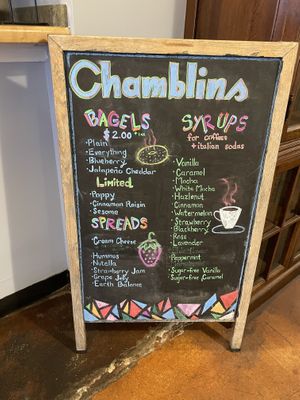 Chamblins
BAGELS
$2.00
Plain
Everything
Blueberry
Jalapeño Cheddar
Limited
Poppy
Cinnamon Raisin
Sesame
SPREADS
Cream Cheese
Hummus
Nutella
Strawberry Jam
Grape Jelly
Earth Balance
SYRUPS
for coffees
+italian sodas
Vanilla
Caramel
Mocha
White Mocha
Hazlenut
Cinnamon
Watermelon
Strawberry
Blackberry
Rose
Lavender
Peppermint
Sugar-free Vanilla
Sugar-free Caramel